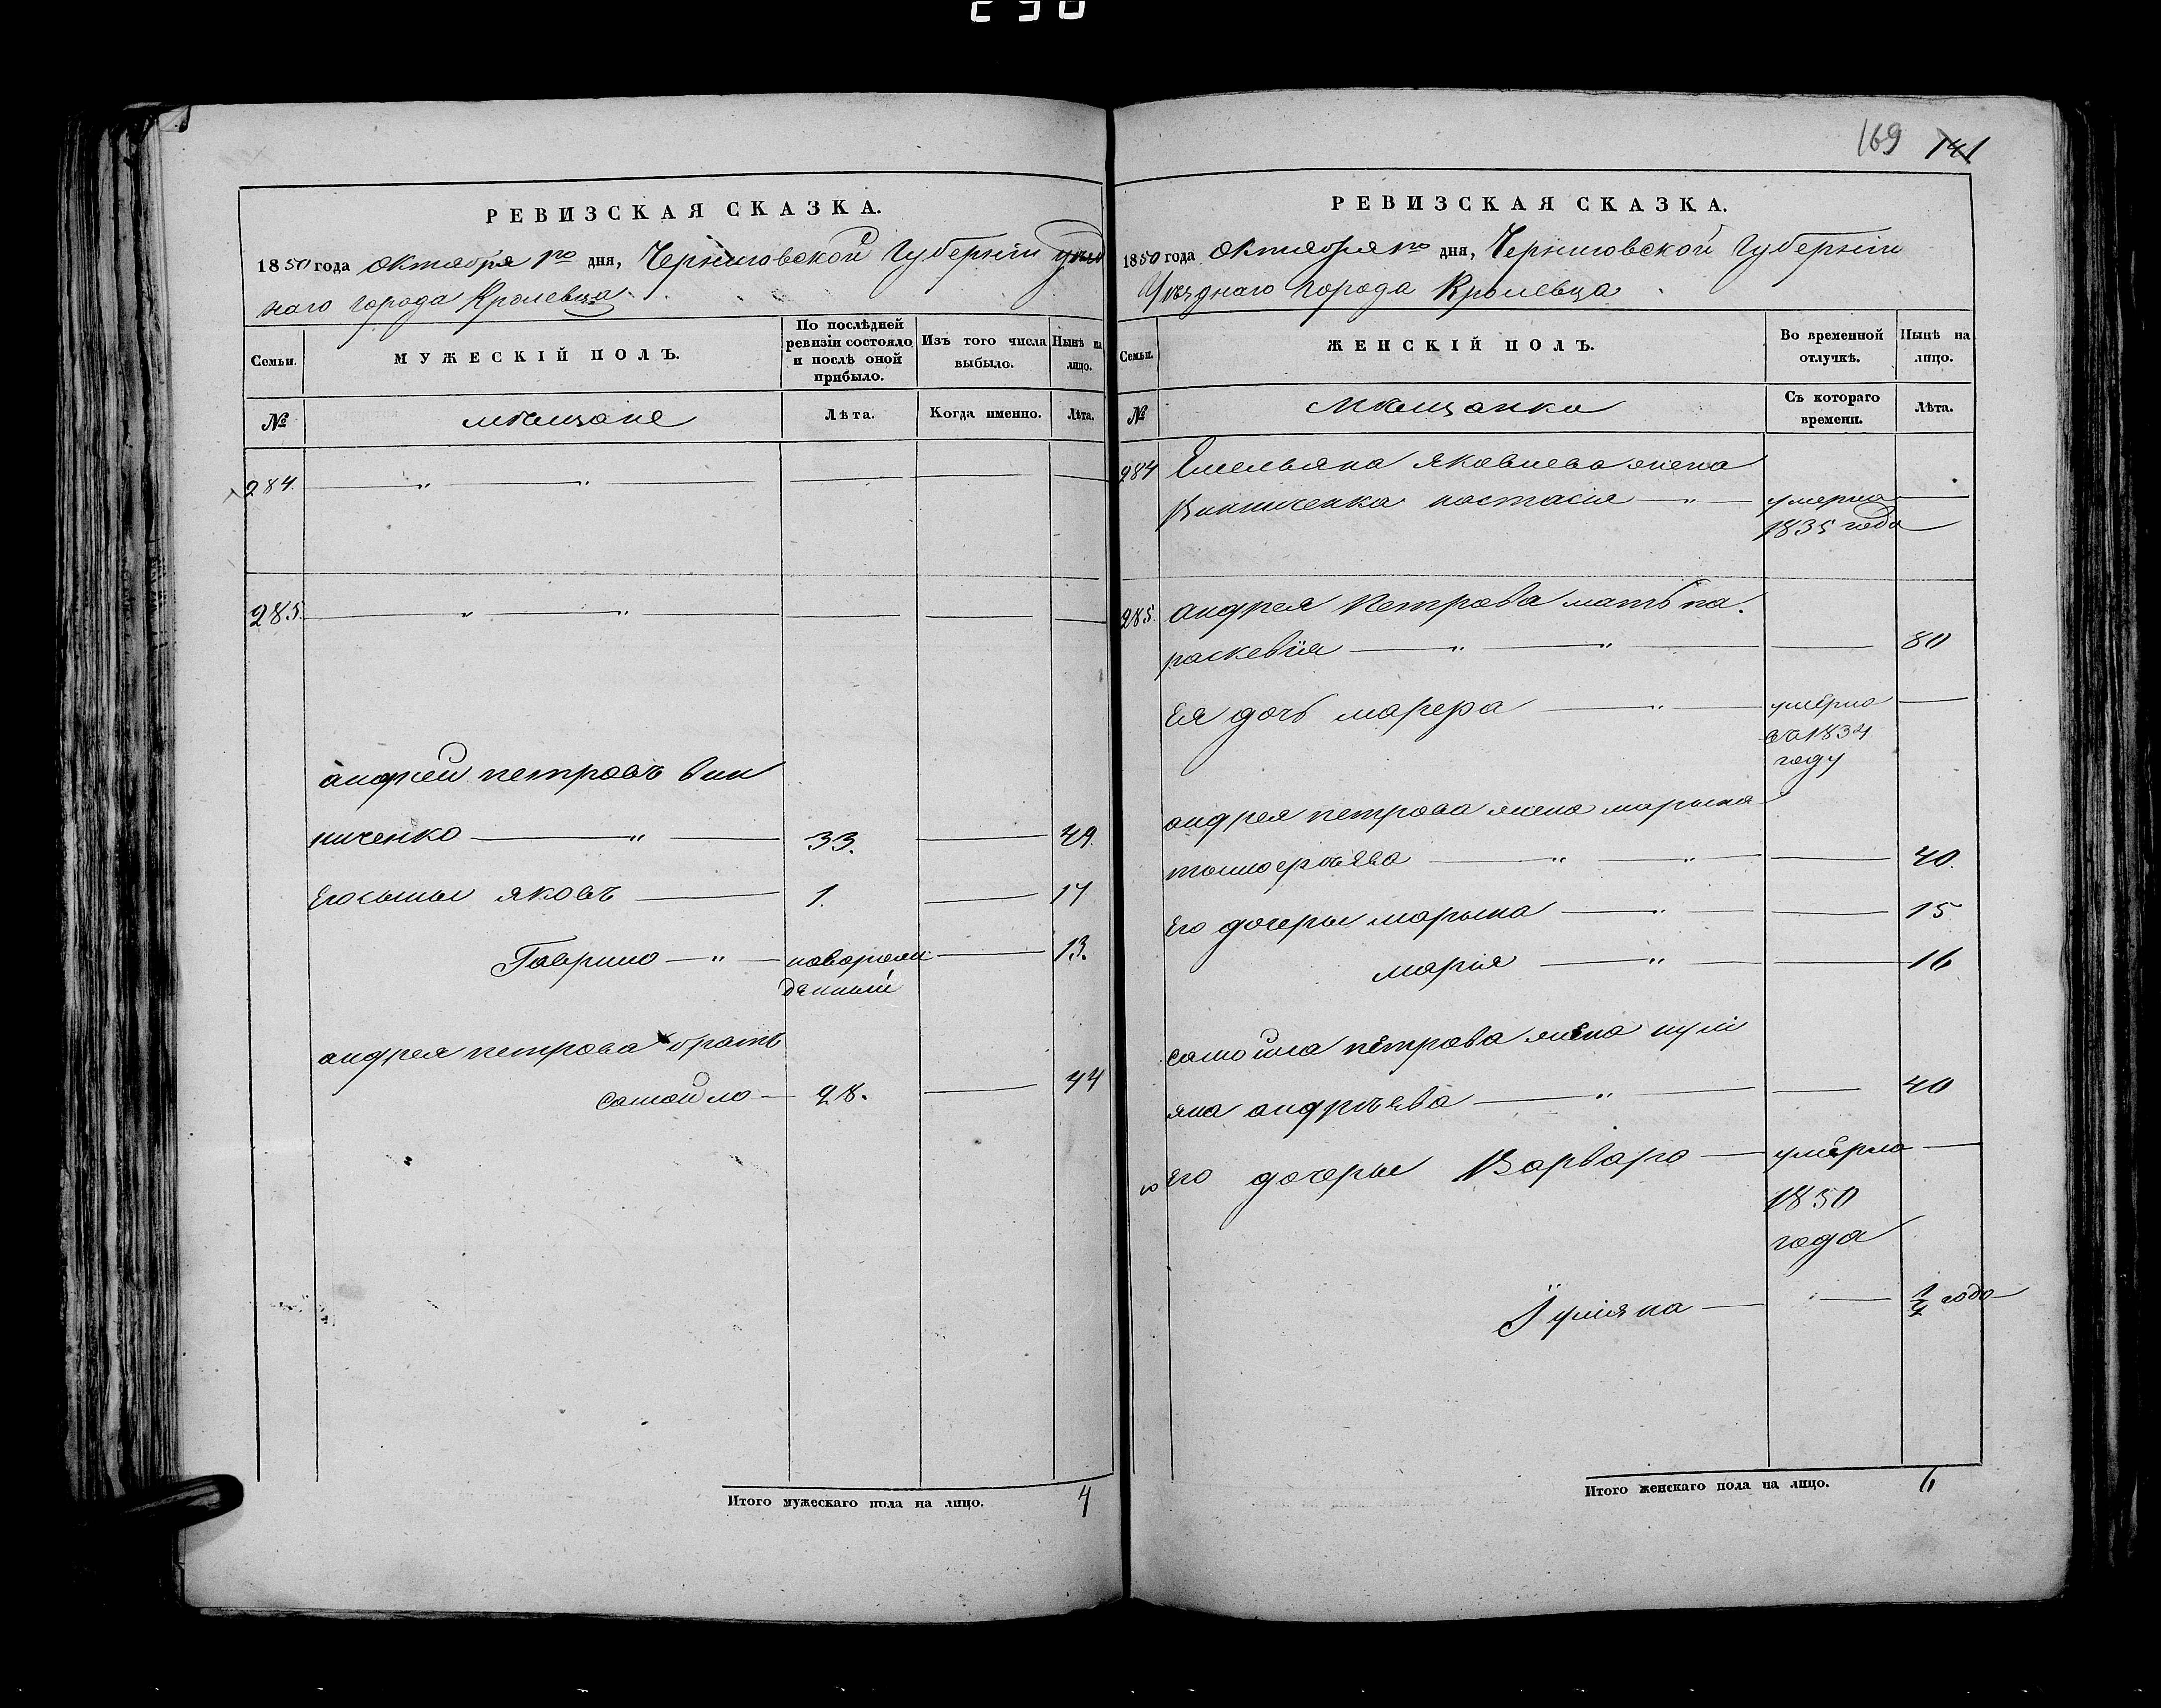 230
РЕВИЗСКАЯ СКАЗКА.
1850 года Октября 1го дня, Черниговской Губернiи уѣзд
наго города Кролевца
Семьи.
МУЖЕСКIЙ ПОЛЪ.
По послѣдней
ревизiи состояло
и послѣ оной
прибыло.
Изъ того числа
выбыло.
Нынѣ на
лицо.
№
мѣщане
Лѣта.
Когда именно.
Лѣта.
284.
285.
андрей петровъ вин
ниченко 33. 49.
Его сыны яковъ 1. 17
Гаврило новорож 13.
денный
андрея петрова братъ
самойло 28. 44
Итого мужескаго пола на лицо. 4
169 141
РЕВИЗСКАЯ СКАЗКА.
1850 года Октября 1го дня, Черниговской Губернiи
Уѣзднаго Города Кролевца
Семьи.
ЖЕНСКIЙ ПОЛЪ.
Во временной
отлучкѣ.
Нынѣ на
лицо.
№
Мѣщанки
Съ котораго
времени.
Лѣта.
284 Емельяна яковлева жена
Винниченка настасiя умерла
1835 года
285. андрея Петрова мать па
раскевiя 80
Ея дочь марфа умерла
въ 1834
году
андрея петрова жена марына
40.
Его дочеры марына 15
марiя 16
самойла петрова жена иулi
яна андрѣева 40
Его дочеры Варвара умерла
1850
года
Iулiяна 1/4 года
Итого женскаго пола на лицо. 6